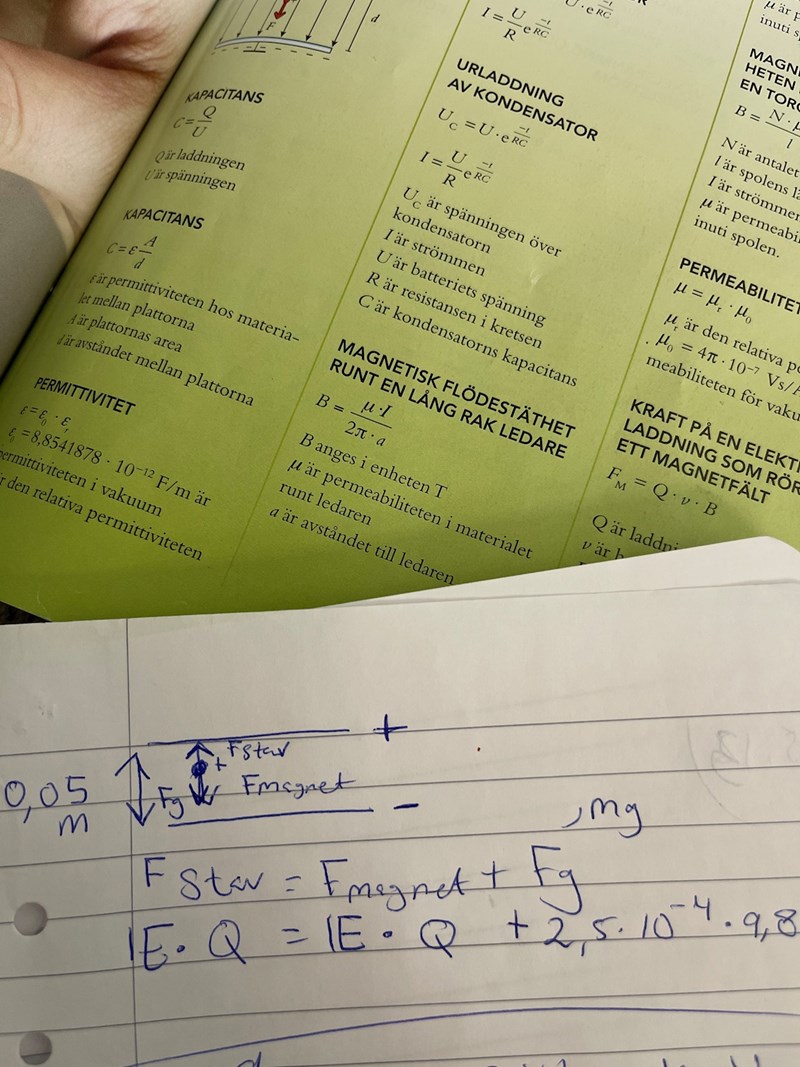 F
d
KAPACITANS
C = Q/U
Q är laddningen
U är spänningen
KAPACITANS
C = ε A/d
ε är permittiviteten hos materia-
let mellan plattorna
A är plattornas area
d är avståndet mellan plattorna
PERMITTIVITET
ε = ε₀ · εᵣ
ε₀ = 8,8541878 · 10⁻¹² F/m är
permittiviteten i vakuum
den relativa permittiviteten
U · e^(-t/RC)
I = U/R e^(-t/RC)
URLADDNING
AV KONDENSATOR
U_C = U · e^(-t/RC)
I = U/R e^(-t/RC)
U_C är spänningen över
kondensatorn
I är strömmen
U är batteriets spänning
R är resistansen i kretsen
C är kondensatorns kapacitans
MAGNETISK FLÖDESTÄTHET
RUNT EN LÅNG RAK LEDARE
B = μ·I / 2π·a
B anges i enheten T
μ är permeabiliteten i materialet
runt ledaren
a är avståndet till ledaren
μ är
inuti
EN
B = N · μ
l
N är antalet
l är spolens
I är strömmen
μ är
inuti spolen.
μ = μᵣ · μ₀
μᵣ är den relativa
μ₀ = 4π · 10⁻⁷
för
KRAFT PÅ EN
LADDNING SOM
ETT MAGNETFÄLT
F_M = Q · v · B
Q är
v är
+
Fstav
+
0,05
m
Fg
Fmagnet
−
, mg
F stav = Fmagnet + Fg
E · Q = E · Q + 2,5 · 10⁻⁴ · 9,8